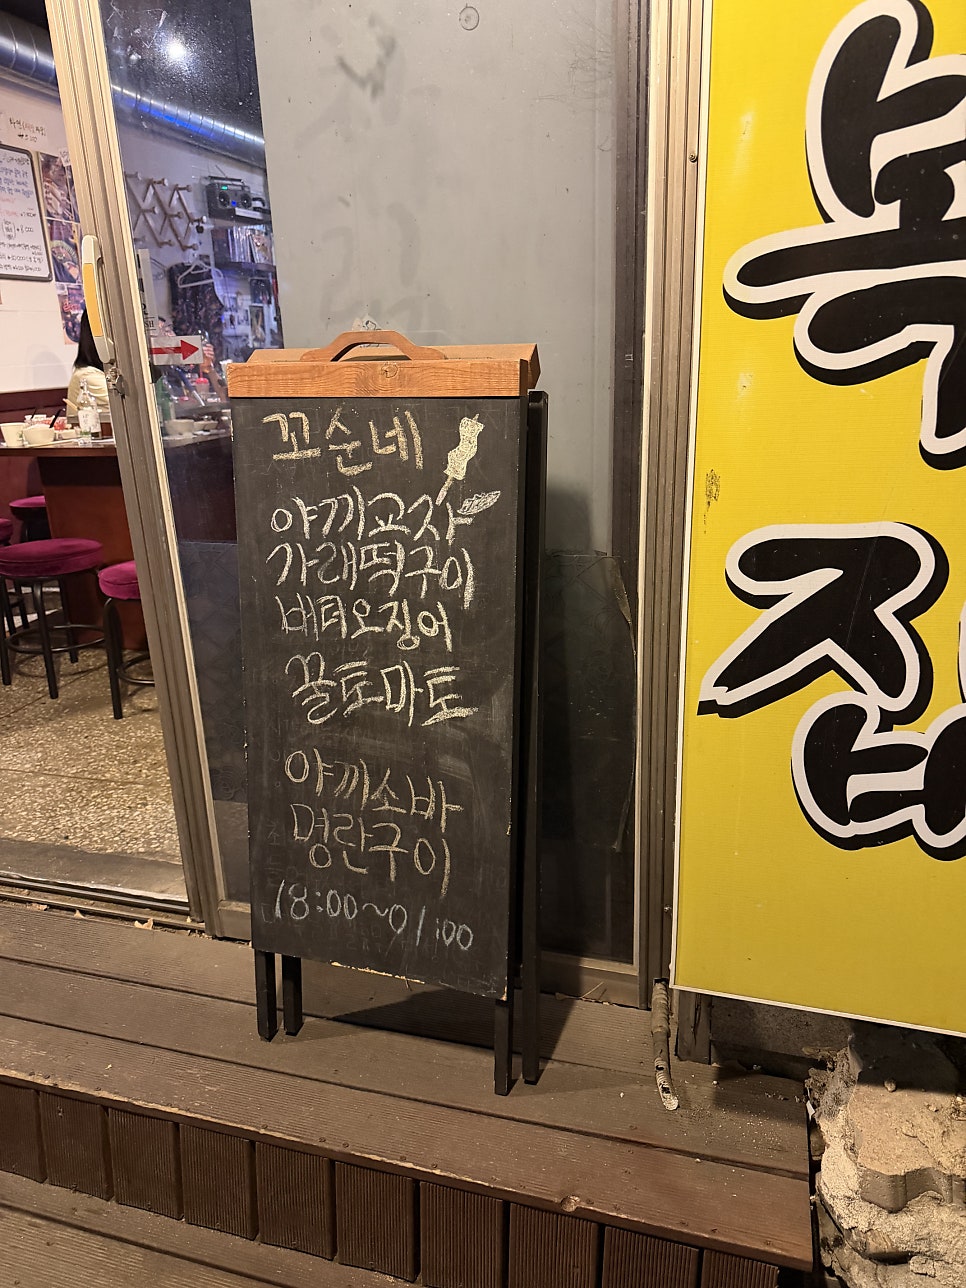 꼬순네
야끼교자
가래떡구이
버터오징어
꿀토마토
야끼소바
명란구이
18:00~01:00